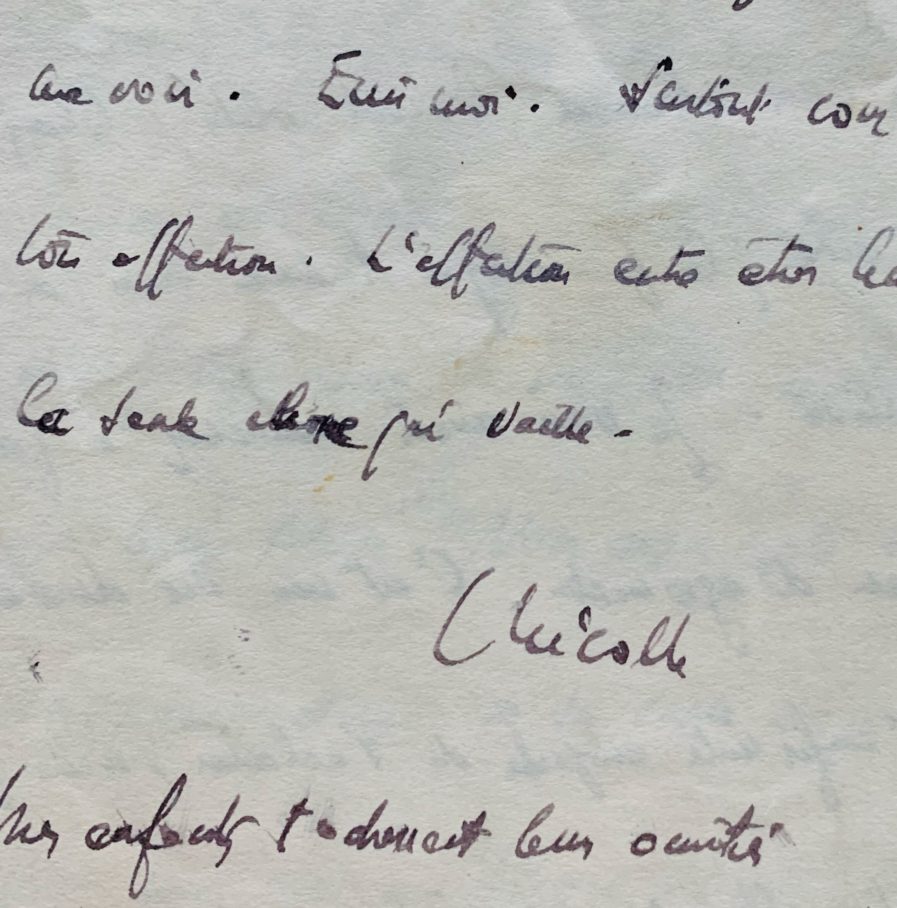 me voir. Écris moi. Surtout
ton affection. L'affection entre êtres
la seule chose qui vaille.
Nicolle
Mes enfants t'adressent leur amitié